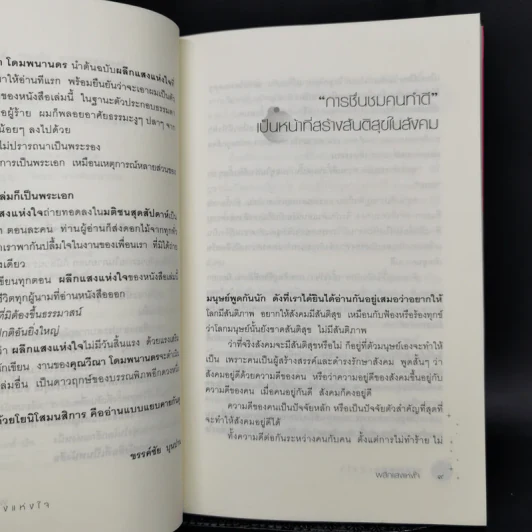 โดมพนานคร นำต้นฉบับผลึกแสงแห่งใจ
มาให้อ่านที่แรก พร้อมยืนยันว่าจะเอาผมเป็นตัว
ของหนังสือเล่มนี้ ในฐานะตัวประกอบธรรมดา
ผู้ร้าย ผมก็พลอยอาศัยธรรมะงูๆ ปลาๆ จาก
น้อยๆ ลงไปด้วย
ไม่ปรารถนาเป็นพระรอง
การเป็นพระเอก เหมือนเหตุการณ์หลายส่วนของ
เล่มก็เป็นพระเอก
แสงแห่งใจถ่ายทอดลงในมติชนสุดสัปดาห์เป็น
ตอนละคน ท่านผู้อ่านก็ส่งดอกไม้จากทุกทั่ว
เราพากันปลื้มใจในงานของเพื่อนเรา ที่มิได้ถ่าย
เดียว
เขียนทุกตอน ผลึกแสงแห่งใจของหนังสือเล่มนี้
ชีวิตทุกผู้นามที่อ่านหนังสือออก
ที่มิต้องขึ้นธรรมาสน์
กติอันยิ่งใหญ่
ผลึกแสงแห่งใจไม่มีวันสิ้นแรง ด้วยแรงผลัก
นักเขียน งานของคุณวีณา โดมพนานครจะดำเนิน
เล่มอื่น เป็นดาวฤกษ์ของบรรณพิภพอีกดวงหนึ่ง
ด้วยโยนิโสมนสิการ คืออ่านแบบแยบคายกันทุก
ขรรค์ชัย บุนปาน
แห่งใจ
“การชื่นชมคนทำดี”
เป็นหน้าที่สร้างสันติสุขในสังคม
มนุษย์พูดกันนัก ดังที่เราได้ยินได้อ่านกันอยู่เสมอว่าอยากให้
โลกมีสันติภาพ อยากให้สังคมมีสันติสุข เหมือนกับฟ้องหรือร้องทุกข์
ว่าโลกมนุษย์นั้นยังขาดสันติสุข ไม่มีสันติภาพ
ว่าที่จริงสังคมจะมีสันติสุขหรือไม่ ก็อยู่ที่ตัวมนุษย์เองจะทำให้
เป็น เพราะคนเป็นผู้สร้างสรรค์และดำรงรักษาสังคม พูดสั้นๆ ว่า
สังคมอยู่ดีด้วยความดีของคน หรือว่าความอยู่ดีของสังคมขึ้นอยู่กับ
ความดีของคน เมื่อคนอยู่กันดี สังคมก็คงอยู่ดี
ความดีของคนเป็นปัจจัยหลัก หรือเป็นปัจจัยตัวสำคัญที่สุดที่
จะทำให้สังคมอยู่ดีได้
ทั้งความดีต่อกันระหว่างคนกับคน ตั้งแต่การไม่ทำร้าย ไม่
ผลึกแสงแห่งใจ